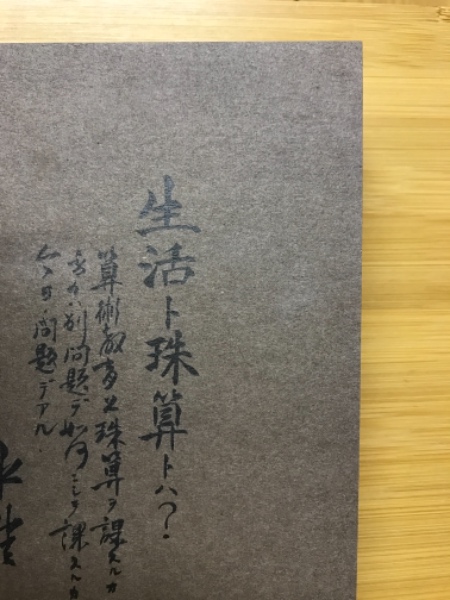 生活ト珠算トハ?.
算術教育ニ珠算ヲ課スルカ
否カハ別問題デ如何ニシテ課スルカ
今日ノ問題デアル.